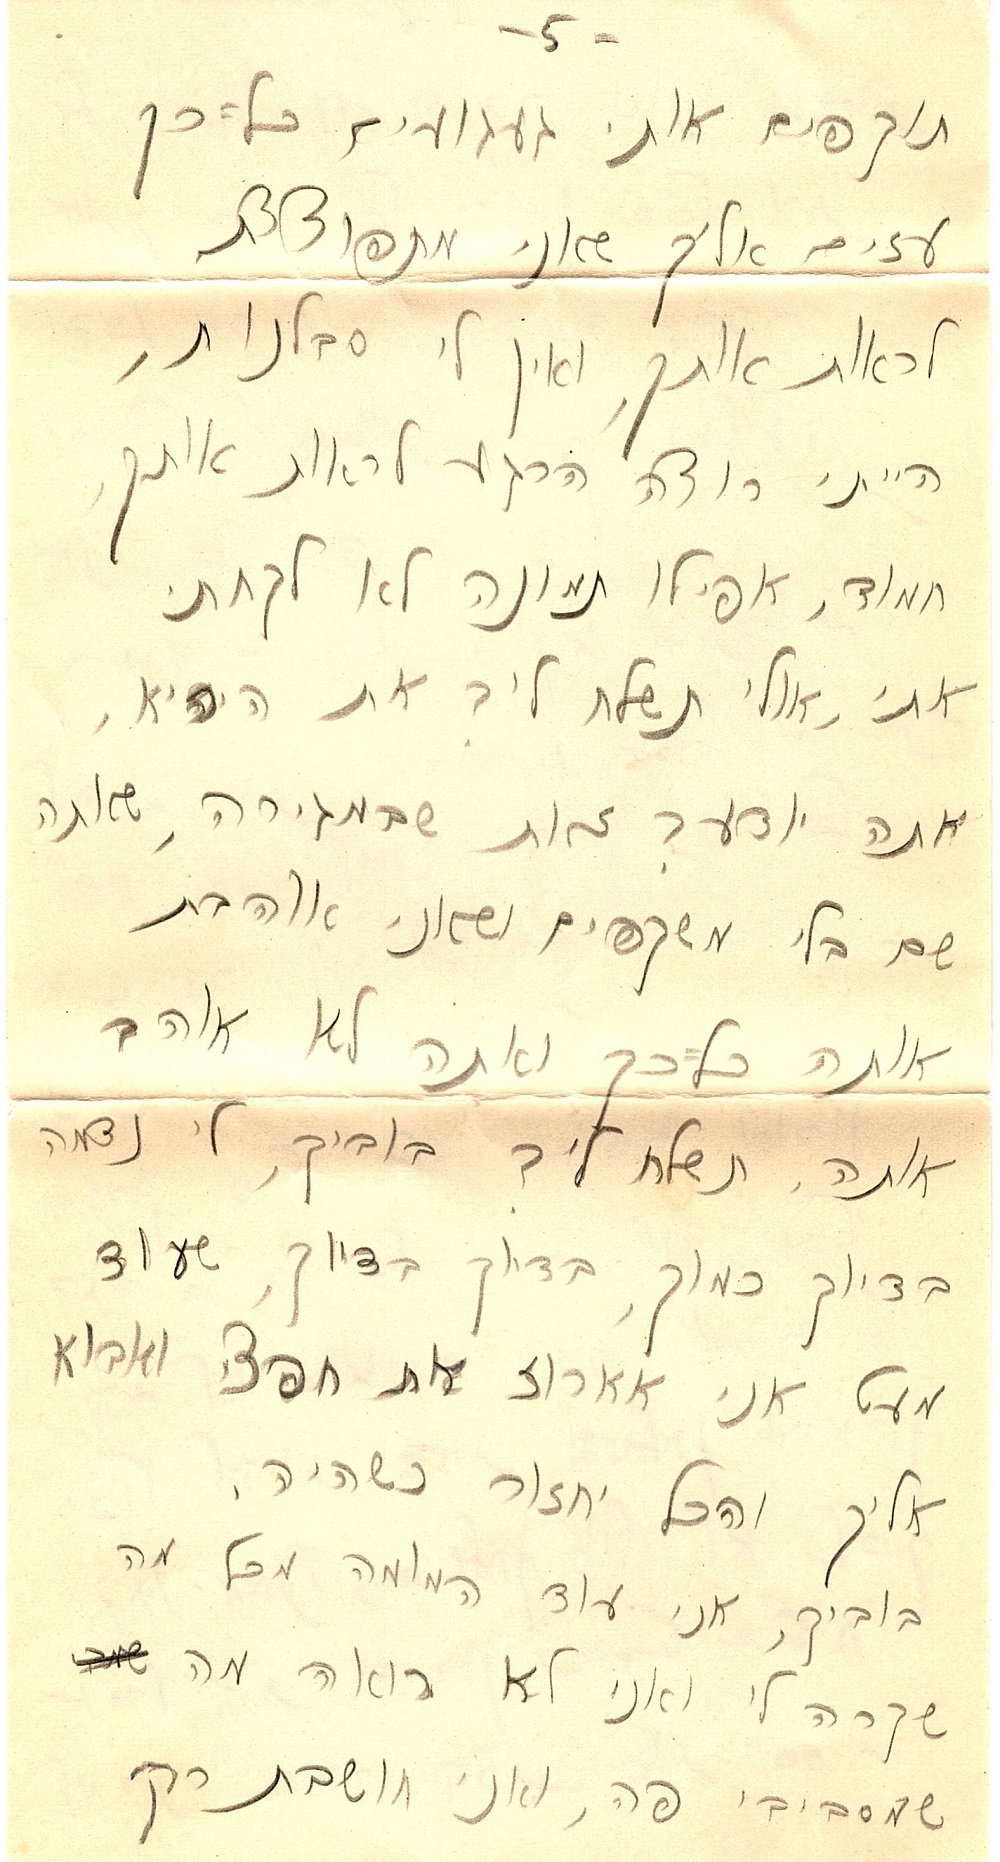 -5-
תוקפים אותי געגועים כל=כך
עזים אליך שאני מתפוצצת
לראות אותך, ואין לי סבלנות,
הייתי רוצה הרגע לראות אותך,
חמוד, אפילו תמונה לא לקחתי
אתי, אולי תשלח לי? את ההיא,
אתה יודע? זאת שבמגירה, שאתה
שם בלי משקפים ושאני אוהבת
אותה כל=כך ואתה לא אוהב
אותה. תשלח לי? בוביק, לי נדמה
בדיוק כמוך, בדיוק בדיוק, שעוד
מעט אני אארוז את חפצי ואבוא
אליך והכל יחזור כשהיה.
בוביק, אני עוד המומה מכל מה
שקרה לי ואני לא רואה מה
שמסביבי פה, ואני חושבת רק